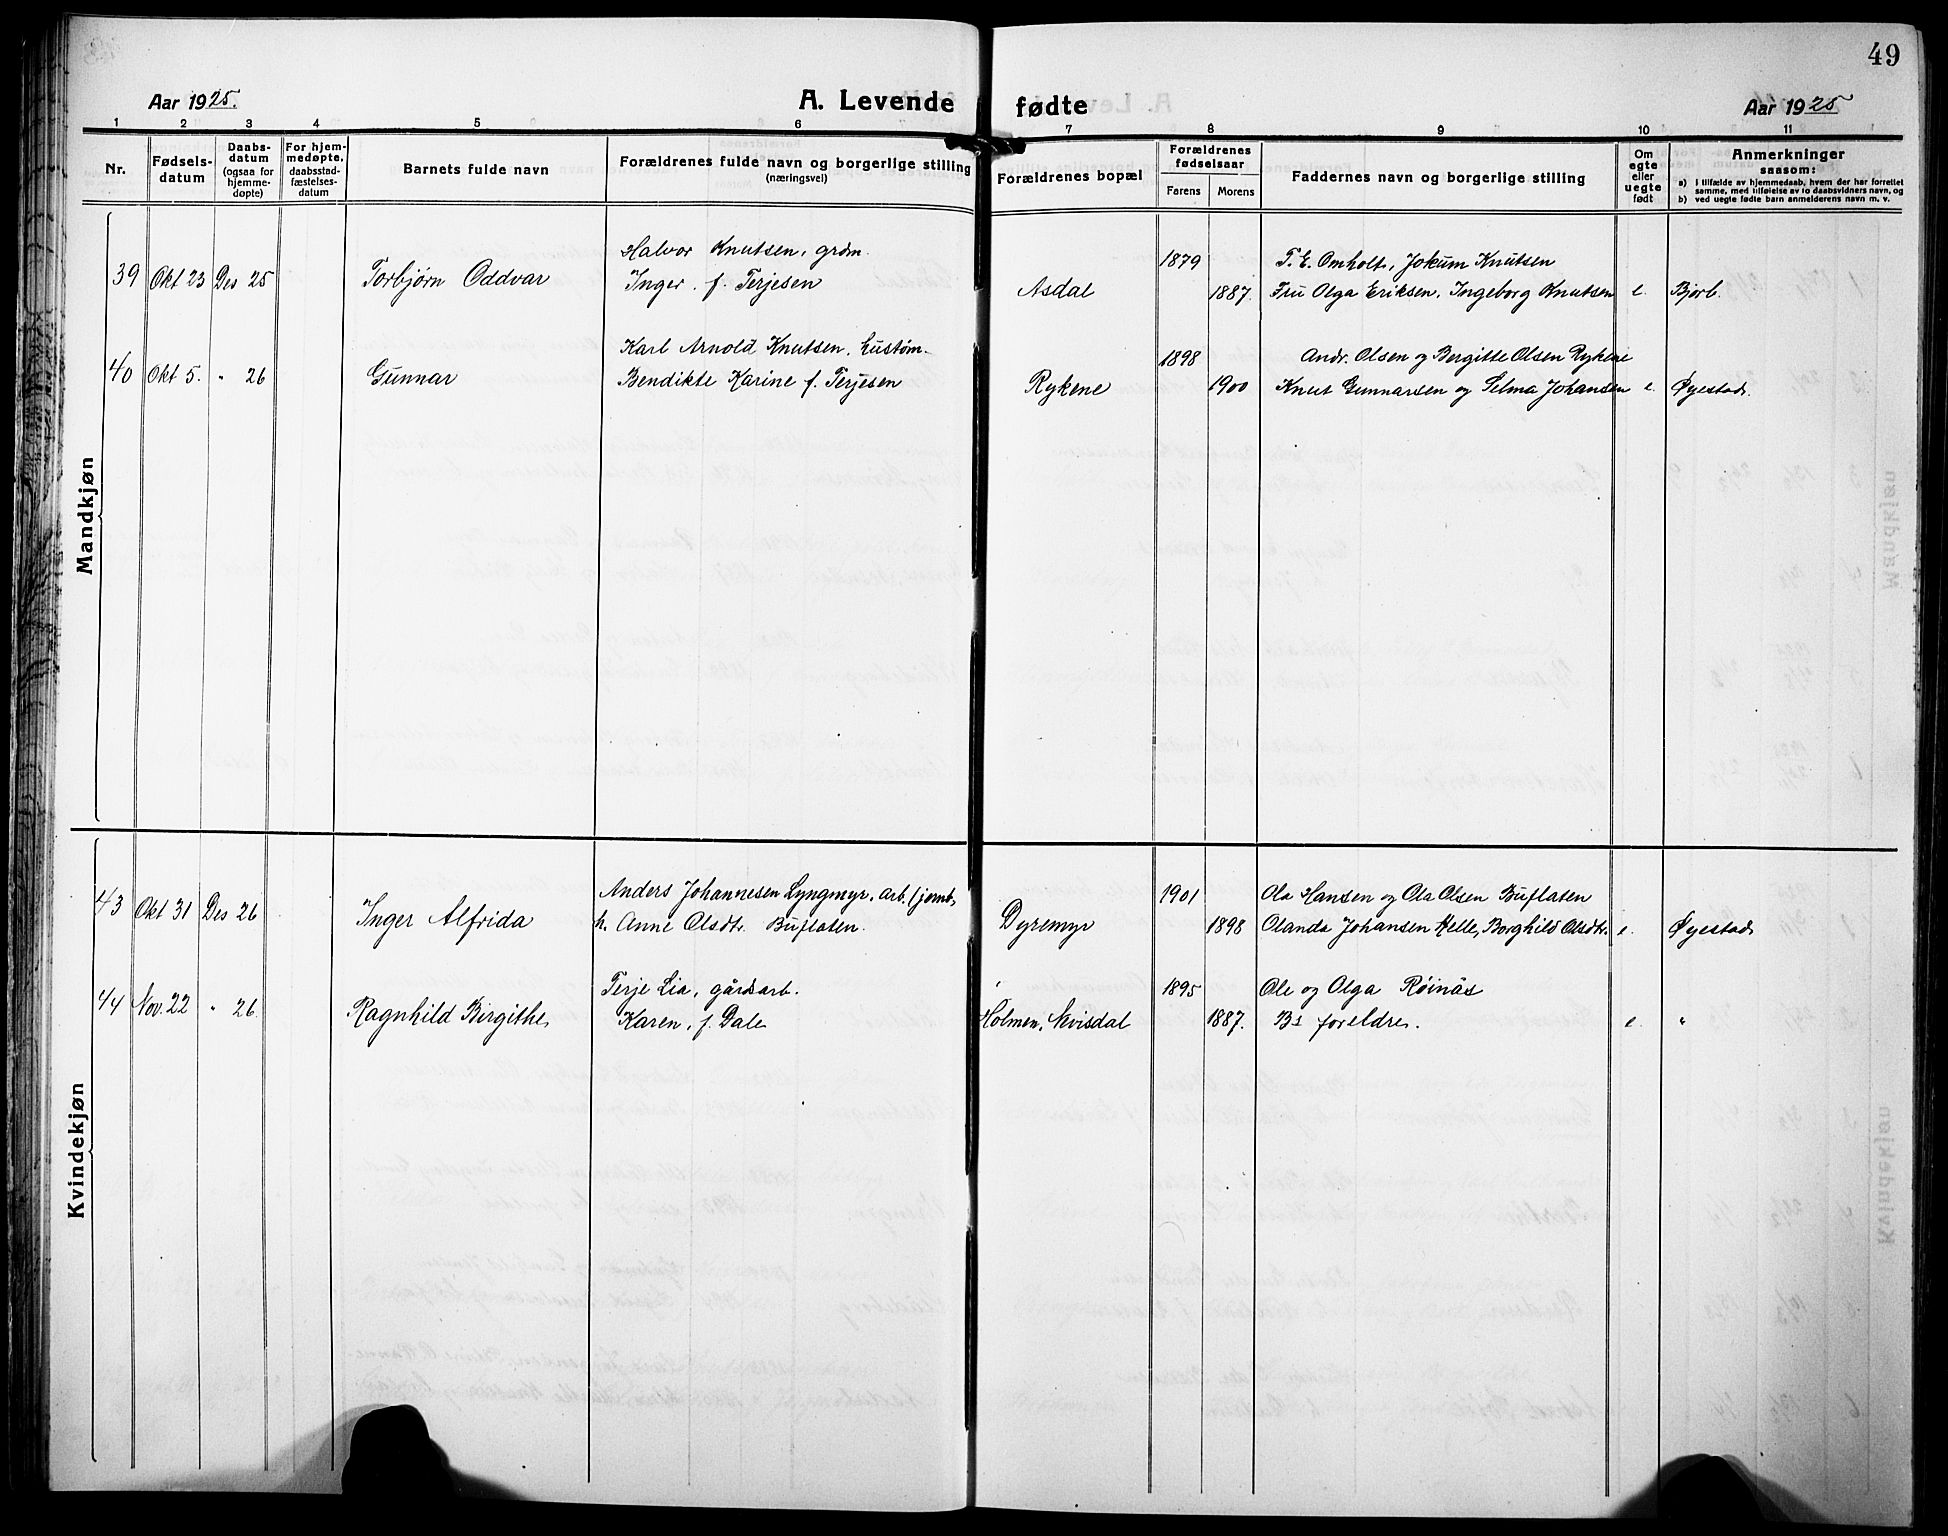 49
Aar 1925.
A. Levende fødte
Aar 1925
1 2 3 4 5 6 7 8 9 10 11
Nr.
Fødsels-
datum
Daabs-
datum
(ogsaa for
hjemme-
døpte)
For hjem-
medøpte,
daabsstad-
fæstelses-
datum
Barnets fulde navn
Forældrenes fulde navn og borgerlige stilling
(næringsvei)
Forældrenes bopæl
Forældrenes
fødselsaar
Farens Morens
Faddernes navn og borgerlige stilling
Om
egte
eller
uegte
født
Anmerkninger
saasom:
a) i tilfælde av hjemmedaab, hvem der har forrettet
samme, med tilføielse av to daabsvidners navn, og
b) ved uegte fødte barn anmelderens navn m. v.
Mandkjøn
Halvor Knutsen, grdm. 1879 T. E. Omholt, Jokum Knutsen
39 Okt 23 Des 25 Torbjørn Oddvar Inger f. Terjesen Asdal 1887. Fru Olga Eriksen, Ingeborg Knutsen e. Bjorb.
Karl Arnold Knutsen, 1898 Andr. Olsen og Bergitte Olsen Rykene
40 Okt 5. " 26 Gunnar Bendikte Karine f. Terjesen Rykene 1900 Knut Gunnarsen og Selma Johansen e. Øyestad.
Kvindekjøn
Anders Johannesen Lyngmyr, arb. 1901 Ola Hansen og Ola Olsen Buflaten
43 Okt 31 Des 26 Inger Alfrida h. Anne Olsdtr. Buflaten. Dyremyr 1898 Olanda Johansen Helle, Borghild Olsdtr. e. Øyestad
Terje Lia, gårdsarb. 1895 Ole og Olga Røinås
44 Nov. 22 " 26. Ragnhild Birgithe Karen, f. Dale Holmen, Nevisdal 1887. Bs foreldre. e. "